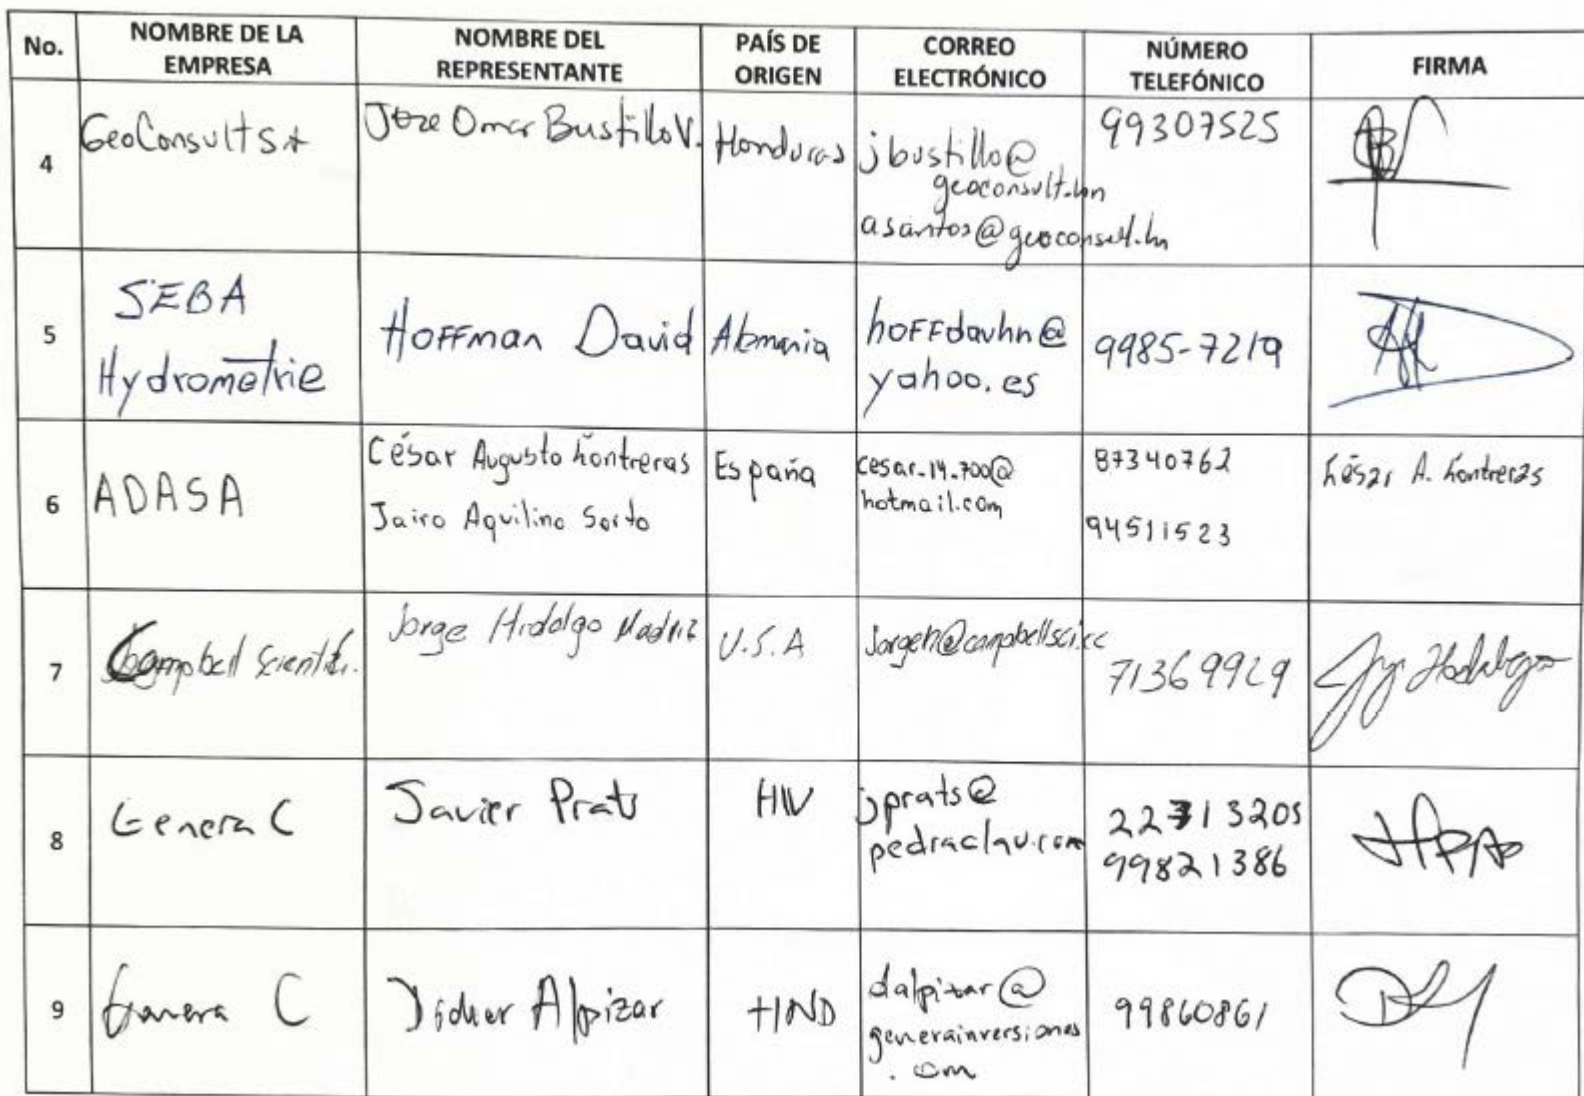 No.
NOMBRE DE LA
EMPRESA
NOMBRE DEL
REPRESENTANTE
PAÍS DE
ORIGEN
CORREO
ELECTRÓNICO
NÚMERO
TELEFÓNICO
FIRMA
4
GeoConsult SA
Jose Omar Bustillo V.
Honduras
jbustillo@
geoconsult.hn
asantos@geoconsult.hn
99307525
5
SEBA
Hydrometrie
HOFFman David
Alemania
hoFFdavhn@
yahoo.es
9985-7219
6
ADASA
César Augusto Contreras
Jairo Aquilino Sorto
España
cesar.14.700@
hotmail.com
87340762
94511523
César A. Contreras
7
Campbell Scientific.
Jorge Hidalgo Madriz
U.S.A
jorgeh@campbellsci.cc
71369929
8
Genera C
Javier Prats
HN
jprats@
pedraclav.com
22313205
99821386
9
Genera C
Alpizar
HND
dalpizar@
generainversiones
.com
99860861